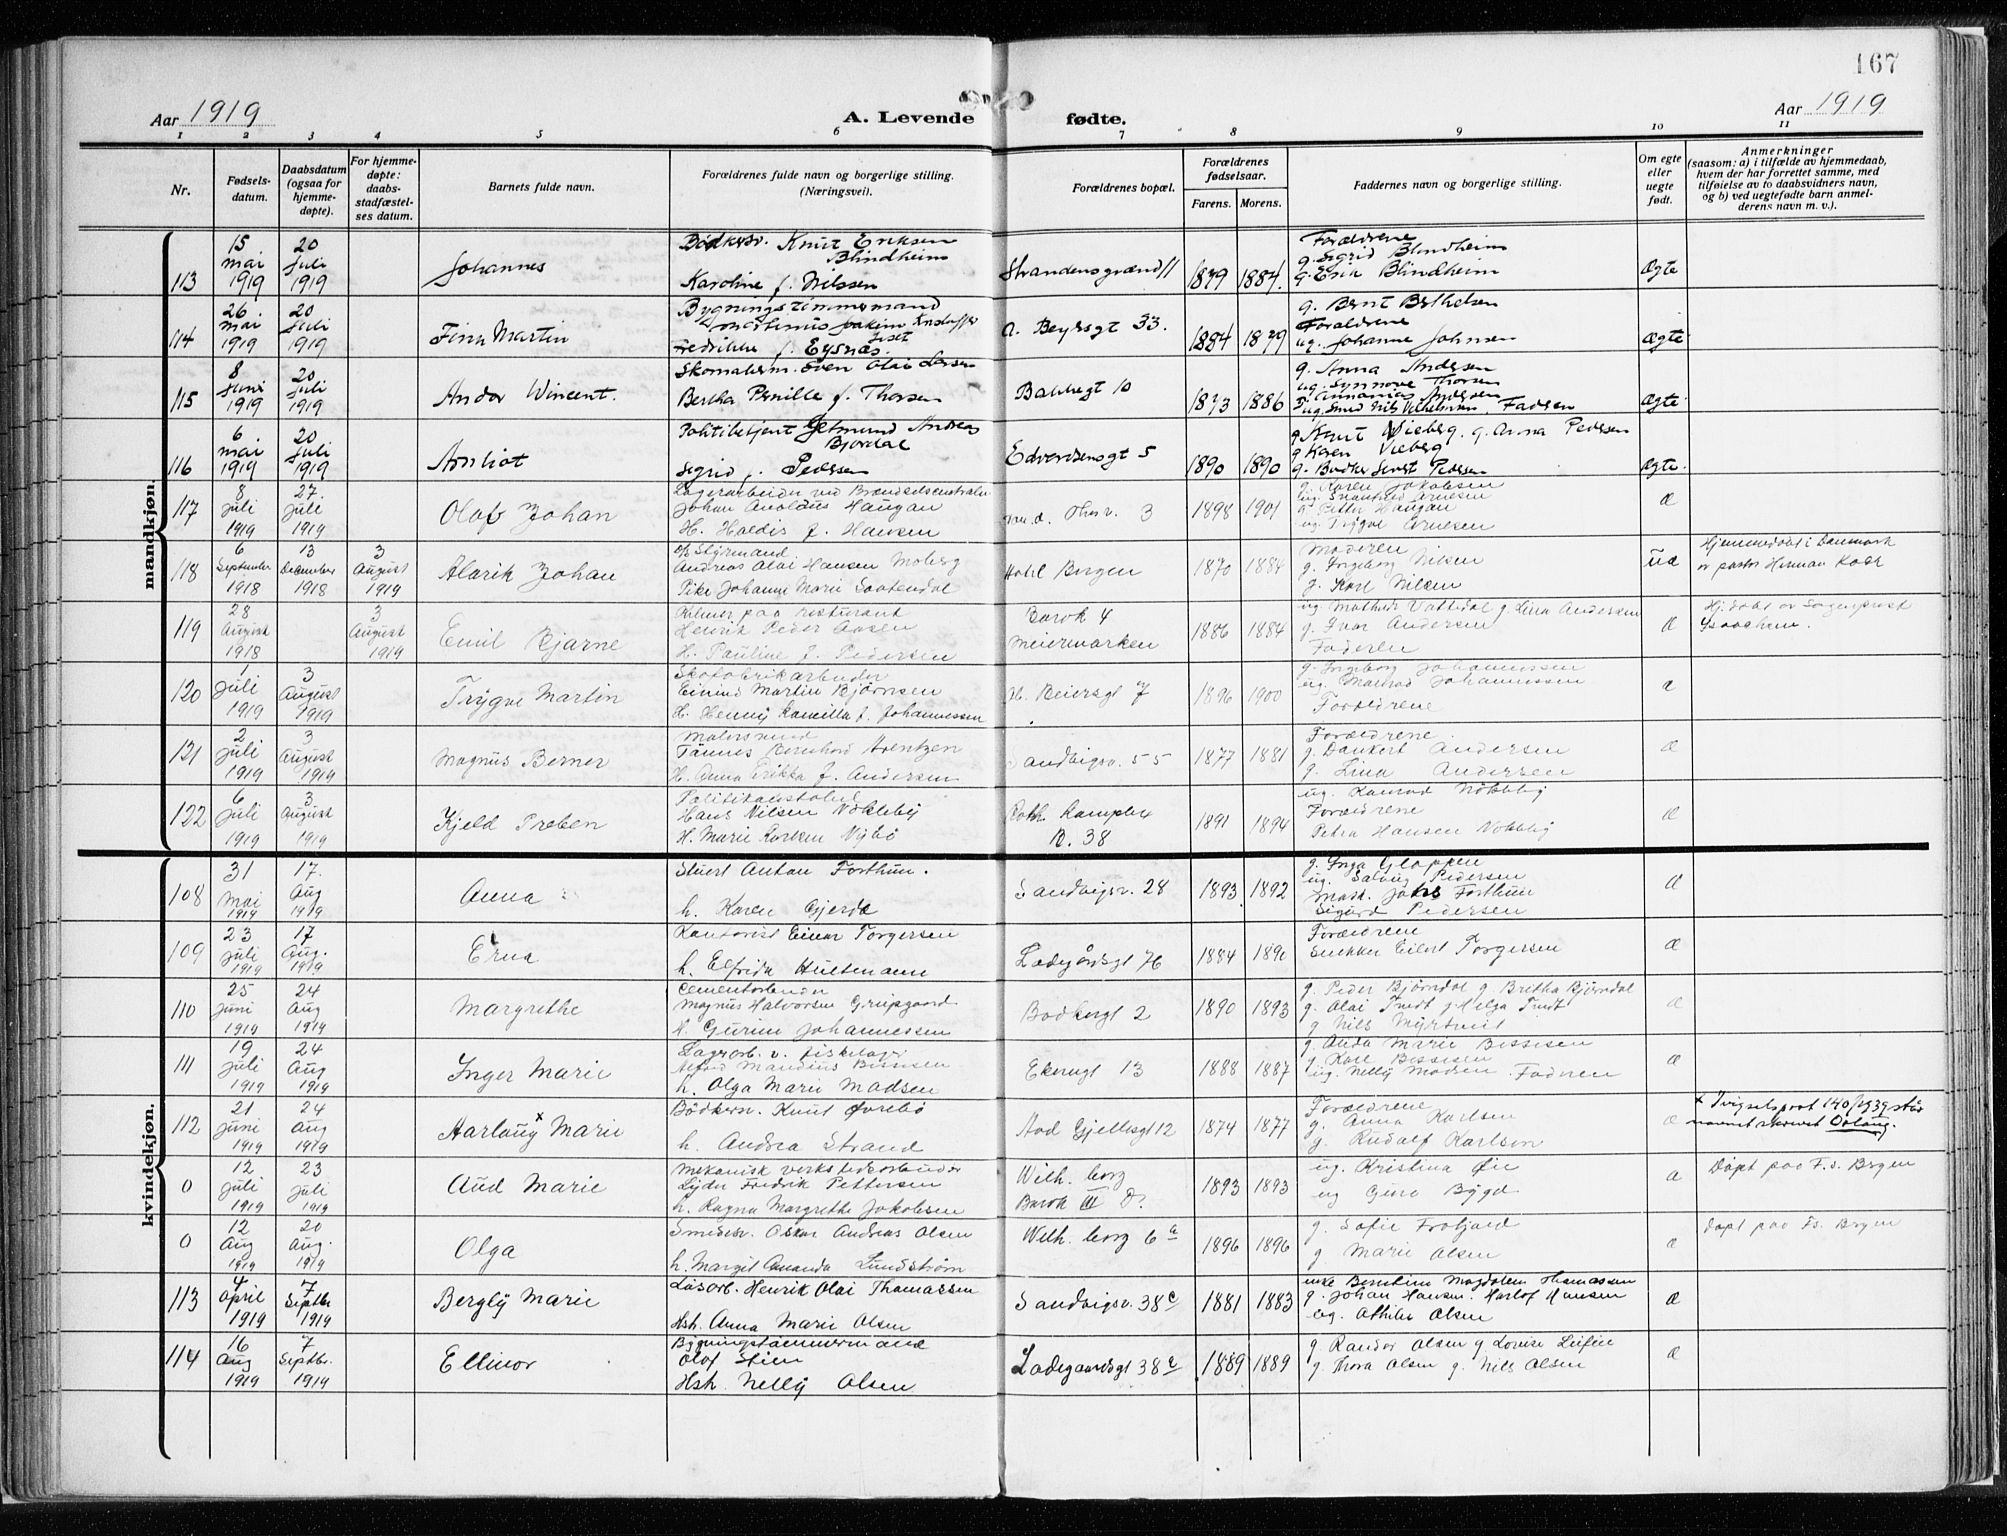 167
Aar 1919
A. Levende fødte.
Aar 1919
1 2 3 4 5 6 7 8 9 10 11
Nr.
Fødselsdatum.
Daabsdatum (ogsaa for hjemmedøpte).
For hjemmedøpte: daabsstadfæstelses datum.
Barnets fulde navn.
Forældrenes fulde navn og borgerlige stilling. (Næringsvei).
Forældrenes bopæl.
Forældrenes fødselsaar.
Farens. Morens.
Faddernes navn og borgerlige stilling.
Om egte eller uegte født.
Anmerkninger (saasom: a) i tilfælde av hjemmedaab, hvem der har forrettet samme, med tilføielse av to daabsvidners navn, og b) ved uegtefødte barn anmelderens navn m. v.).
mandkjøn.
113
15 mai 1919
20 Juli 1919
Johannes
Bødkersv. Knut Eriksen Blindheim
Karoline f. Nilssen
Strandensgrænd 11
1879 1884.
Forældrene
g. Sigrid Blindheim
g. Erik Blindheim
ægte
114
26. mai 1919
20 Juli 1919
Finn Martin
Bygningstømmermand
Martinius Joakim
Fredrikke f. Eysnæs
A. Beyersgt 33.
1884 1879
g. Bernt Berthelsen
Forældrene
ug. Johanne Johnsen
ægte
115
8 Juni 1919
20 Juli 1919
Andor Wincent.
Skomakerm. Sven Olai Larsen
Bertha Pernille f. Thorsen
Bakkegt 10
1873 1886
g. Anna Andersen
ug. Synnøve Thorsen
Ananias Andersen
ug. Smed Nils Vilhelmsen. Faderen
ægte
116
6 mai 1919
20 Juli 1919
Arnliot
Politibetjent Getmund Andreas Bjordal
Sigrid f. Pedersen
Edvardsensgt 5
1890 1890
g. Knut Vieberg. g. Anna Pedersen
g Karen Vieberg
g. Bødker Sivert Pedersen
ægte.
117
8 Juli 1919
27. Juli 1919
Olaf Johan
Lagerarbeider ved Brændselscentralen
Johan Aroldus Haugan
H. Haldis f. Hansen
3
1898 1901
g. Karen Jakobsen
ug. Arnesen
g. Petter Haugan
ug. Trygve Arnesen
æ
118
6 September 1918
13 December 1918
3 August 1919
Alarik Johan
Styrmand
Andreas Olai Hansen Moberg
Pike Johanne Marie Saatendal
Hotel Bergen
1870 1884
Moderen
g. Ingeborg Nilsen
g. Karl Nilsen
uæ
Hjemmedøbt i Danmark
av pastor Herman Koch
119
28 August 1918
3 August 1919
Emil Bjarne
Kelner paa resturant
Henrik Peder Aasen
H. Pauline f. Pedersen
Barak 4
Meiermarken
1886 1884
ug. Mathilde Vattedal g. Lina Andersen
g. Ivar Andersen
Faderen
æ
Hj. døbt av Sogneprest
Isaachsen.
120
1 Juli 1919
3 August 1919
Trygve Martin
Skofabrikarbeider
Einund Martin Bjørnsen
H. Henny Kamilla f. Johannessen
H. Beiersgt 7
1896 1900
g. Ingeborg Johannessen
ug. Johannessen
Forældrene
æ
121
2 Juli 1919
3 August 1919
Magnus Berner
Malersvend
Tønnes Bernhard Arentzen
H. Anna Erikka f. Andersen
Sandvigsv. 55
1877 1881
Forældrene.
g. Dankert Andersen
g. Lina Andersen
æ
122
6 Juli 1919
3 August 1919
Kjeld Preben
Politikonstabel
Hans Nilsen Nøkleby
H. Marie Nybø
38
1891 1894
ug. Konrad Nøkkleby
Forældrene
Petra Hansen Nøkkleby
æ
kvindekjøn.
108
31 Mai 1919
17. Aug 1919
Anna
Stuert Anton Forthun.
h. Karen Gjerde
Sandvigsv. 28
1893 1892
g. Inga Gloppen
ug. Solveig Pedersen
Mask. Jakob Forthun
Sigurd Pedersen
æ
109
23 juli 1919
17 Aug. 1919
Erna
Kontorist Einar Torgersen
h. Elfrida Hultmann
Ladegårdsgt 76
1884
Forældrene
Snekker Eilert Torgersen
æ
110
25 Juni 1919
24 Aug 1919
Margrethe
Cementarbeider
Magnus Halvorsen Gripsgaard
H. Gurine Johannessen
Bødkergt 2
1890 1893
g. Peder Bjørndal g Bretha Bjørndal
g. Olai Tvedt g Helga Tvedt
g Nils Myrtveit
æ
111
19 Juli 1919
24 Aug 1919
Inger Marie
Lagerarb. v. fiskelager
h. Olga Marie Madsen
Ekregt 13
1888 1887
g. Anda Marie Bessesen
g. Karl Bessesen
ug. Nelly Madsen. Faderen
æ
112
21 Juni 1919
24 Aug 1919
Aarlaug x Marie
Bødkersv. Knut Øvrebø
h. Andrea Strand
Aad Gjellesgt 12
1874 1877
Forældrene
g. Anna Karlsen
g. Rudolf Karlsen
æ
x Tvigselsprot 140/1939 står
navnet skrevet Oðlaug.
0
12 Juli 1919
23 Juli 1919
Aud Marie
Mekanisk verkstedarbeider
Lyder Fredrik Pettersen
h. Ragna Margrethe Jakobsen
Wilh. borg
Barak III D.
1893 1893
ug. Kristina Øie
ug Guro Bygd
æ
Døpt paa F.s. Brgen
0
12 Aug 1919
20 Aug. 1919
Olga
Smedesv. Oskar Andreas Olsen
h. Margit Amanda Lundstrøm
Welh. borg 6a
1896 1896
g. Sofie Frotjord
g Marie Olsen
æ
Døpt paa Fs. Brgen
113
4 April 1919
7 Septbr 1919
Bergly Marie
Løsarb. Henrik Olai Thomassen
Hsh. Anna Marie Olsen
Sandvigsv. 38c
1881 1883
enke Berntine Magdalene Thomassen
g. Johan Hansen. Harlof Hansen
ug. Athilie Olsen
æ
114
16 Aug 1919
7 Septbr. 1919
Ellinor
Bygningstømmermand
Olaf Stien
Hsh. Nelly Olsen
Ladegaardsgt 38c
1889 1889
g. Randor Olsen g Lovise
g. Thora Olsen g. Nils Olsen
æ